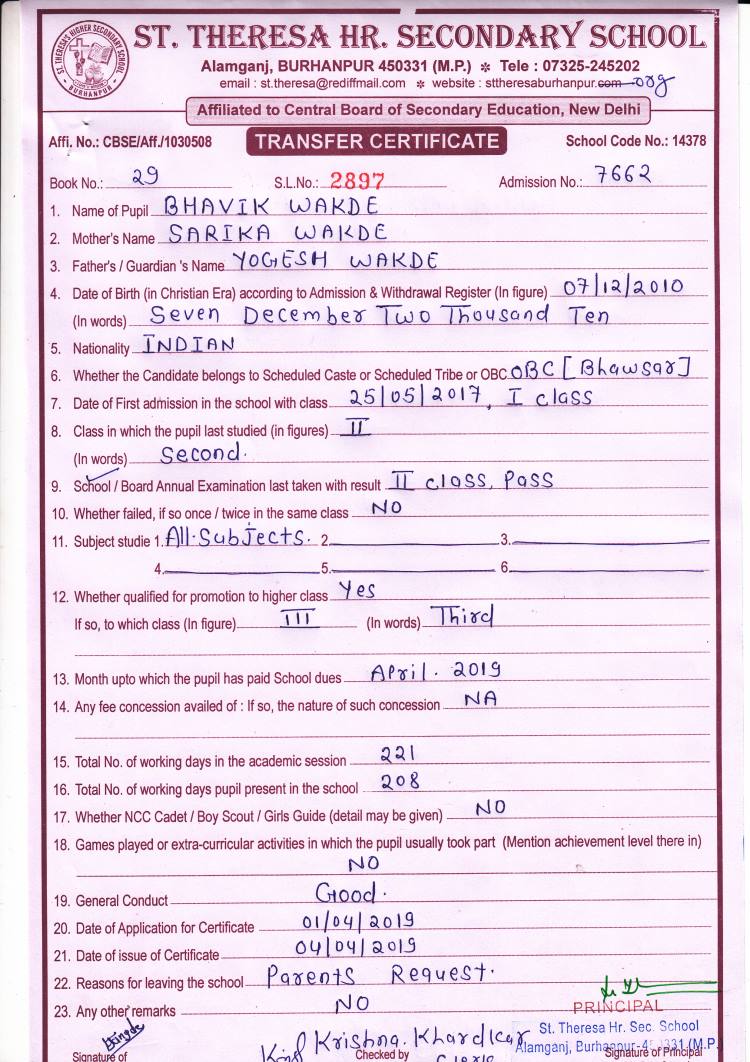 ST. THERESA HR. SECONDARY SCHOOL
Alamganj, BURHANPUR 450331 (M.P.) ✻ Tele : 07325-245202
email : st.theresa@rediffmail.com ✻ website : sttheresaburhanpur.com org
Affiliated to Central Board of Secondary Education, New Delhi
ST. THERESA'S HIGHER SECONDARY SCHOOL
BURHANPUR
Affi. No.: CBSE/Aff./1030508 TRANSFER CERTIFICATE School Code No.: 14378
Book No.: 29 S.L.No.: 2897 Admission No.: 7662
1. Name of Pupil BHAVIK WAKDE
2. Mother's Name SARIKA WAKDE
3. Father's / Guardian 's Name YOGESH WAKDE
4. Date of Birth (in Christian Era) according to Admission & Withdrawal Register (In figure) 07/12/2010
(In words) Seven December Two Thousand Ten
5. Nationality INDIAN
6. Whether the Candidate belongs to Scheduled Caste or Scheduled Tribe or OBC OBC [Bhawsar]
7. Date of First admission in the school with class 25/05/2017, I class
8. Class in which the pupil last studied (in figures) II
(In words) Second.
9. School / Board Annual Examination last taken with result II class, Pass
10. Whether failed, if so once / twice in the same class NO
11. Subject studie 1. All Subjects. 2. 3.
4. 5. 6.
12. Whether qualified for promotion to higher class Yes
If so, to which class (In figure) III (In words) Third
13. Month upto which the pupil has paid School dues April. 2019
14. Any fee concession availed of : If so, the nature of such concession NA
15. Total No. of working days in the academic session 221
16. Total No. of working days pupil present in the school 208
17. Whether NCC Cadet / Boy Scout / Girls Guide (detail may be given) NO
18. Games played or extra-curricular activities in which the pupil usually took part (Mention achievement level there in)
NO
19. General Conduct Good.
20. Date of Application for Certificate 01/04/2019
21. Date of issue of Certificate 04/04/2019
22. Reasons for leaving the school Parents Request.
23. Any other remarks NO
PRINCIPAL
St. Theresa Hr. Sec. School
Krishna. Khardkar
Alamganj, Burhanpur-4 331 (M.P.
Signature of Checked by Clerk Signature of Principal